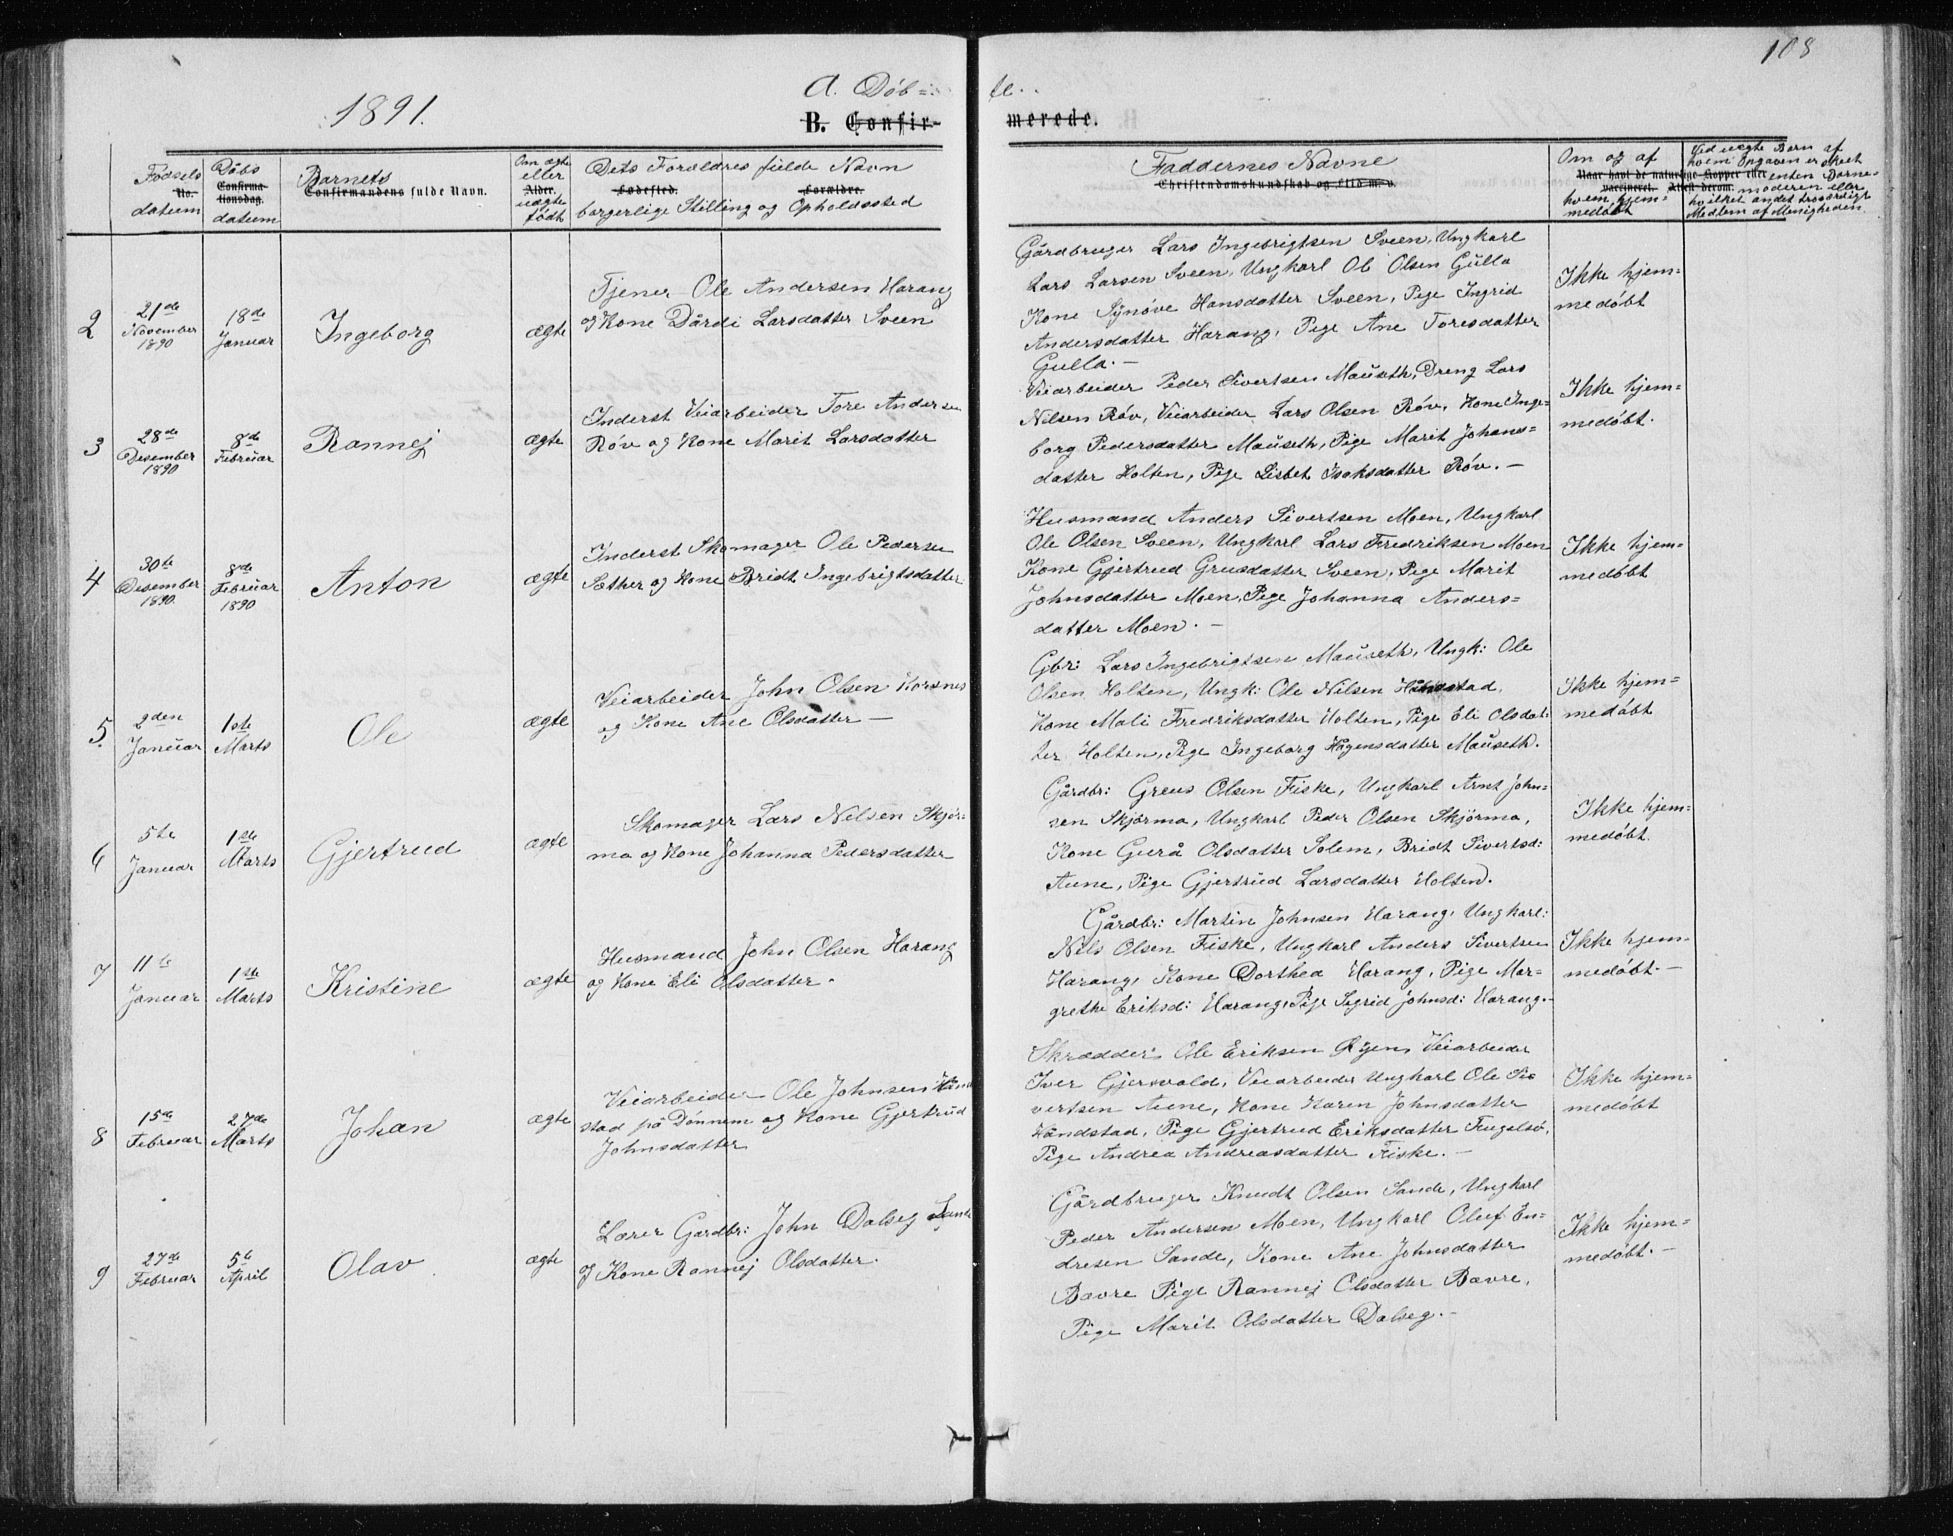 108
1891.
A. Döb=
te..
B. Confir-
merede.
Födsels
No.
datum
Döbs
Confirma-
tionsdag.
datum
Barnets
Confirmandens fulde Navn.
Om ægte
eller
Alder.
uægte
födt
Dets Foræld​res fulde Navn
Fødested. Forældre.
borgerlige Stilling og Opholdssted
Faddernes Navne
Christendomskundskab og Flid m.v.
Om og af
Naar havt de naturlige Kopper eller
vaccineret. Attest derom.
hvem hjem=
medöbt
Ved uægte Børn af
hvem Opgaven er skeet
enten Barne-
moderen eller
hvilket andet troværdigt
Medlem af Menigheden.
2
21de
November
1890
18de
Januar
Ingeborg
ægte
Tjener Ole Andersen Harang
og Kone Dårdi Larsdatter Sveen
Gårdbruger Lars Ingebrigtsen Sveen, Ungkarl
Lars Larsen Sveen, Ungkarl Ole Olsen Gulla
Kone Synöve Hansdatter Sveen, Pige Ingrid
Andersdatter Harang, Pige Ane Toresdatter
Gulla. —
Ikke hjem=
medöbt
3
28de
Desember
1890
8de
Februar
Rannej
ægte
Inderst Veiarbeider Tore Andersen
Röv og Kone Marit Larsdatter
Veiarbeider Peder Sivertsen Mauseth, Dreng Lars
Nilsen Röv, Veiarbeider Lars Olsen Röv, Kone Inge=
borg Pedersdatter Mauseth, Pige Marit Johans=
datter Holten, Pige Lisbet Isaksdatter Röv. —
Ikke hjem=
medöbt.
4
30te
Desember
1890.
8de
Februar
1890
Anton
ægte
Inderst Skomager Ole Pedersen
Sæther og Kone Bridt Ingebrigtsdatter
Husmand Anders Sivertsen Moen, Ungkarl
Ole Olsen Sveen, Ungkarl Lars Fredriksen Moen
Kone Gjertrud Greusdatter Sveen, Pige Marit
Johnsdatter Moen, Pige Johanna Anders=
datter Moen. —
Ikke hjem=
medöbt
5.
2den
Januar
1ste
Marts
Ole
ægte
Veiarbeider John Olsen Korsnes
og Kone Ane Olsdatter —
Gbr: Lars Ingebrigtsen Mauseth, Ungk: Ole
Olsen Holten, Ungk: Ole Nilsen Håndstad,
Kone Mali Fredriksdatter Holten, Pige Eli Olsdat=
ter Holten, Pige Ingeborg Hågensdatter Mauseth.
Ikke hjem=
medöbt
6
5te
Januar
1ste
Marts
Gjertrud
ægte
Skomager Lars Nilsen Skjör=
ma og Kone Johanna Pedersdatter
Gårdbr: Greus Olsen Fiske, Ungkarl Arnt John=
sen Skjörma, Ungkarl Peder Olsen Skjörma,
Kone Gurå Olsdatter Solem, Bridt Sivertsd:
Aune, Pige Gjertrud Larsdatter Holten.
Ikke hjem=
medöbt.
7
11te
Januar
1ste
Marts
Kristine
ægte
Husmand John Olsen Harang
og Kone Eli Olsdatter.
Gårdbr: Martin Johnsen Harang, Ungkarl:
Nils Olsen Fiske, Ungkarl Anders Sivertsen
Harang, Kone Dorthea Harang, Pige Mar=
grethe Eriksd: Harang, Pige Sigrid Johnsd: Harang. —
Ikke hjem=
medöbt. —
8
15de
Februar
27de
Marts
Johan
ægte
Veiarbeider Ole Johnsen Hånd
stad på Dönnem og Kone Gjertrud
Johnsdatter
Skrædder Ole Eriksen Öyen, Veiarbeider
Iver Gjersvold, Veiarbeider Ungkarl Ole Si=
vertsen Aune, Kone Karen Johnsdatter
Håndstad, Pige Gjertrud Eriksdatter Fugelsö,
Pige Andrea Andreasdatter Fiske. —
Ikke hjem=
medöbt
9
27de
Februar
5te
April
Olav
ægte
Lærer Gardbr: John Dalseg Sande
og Kone Rannej Olsdatter.
Gårdbruger Knudt Olsen Sande, Ungkarl
Peder Andersen Moen, Ungkarl Oluf En=
dresen Sande, Kone Ane Johnsdatter
Bævre Pige Rannej Olsdatter Bævre,
Pige Marit Olsdatter Dalseg. —
Ikke hjem=
medöbt. —